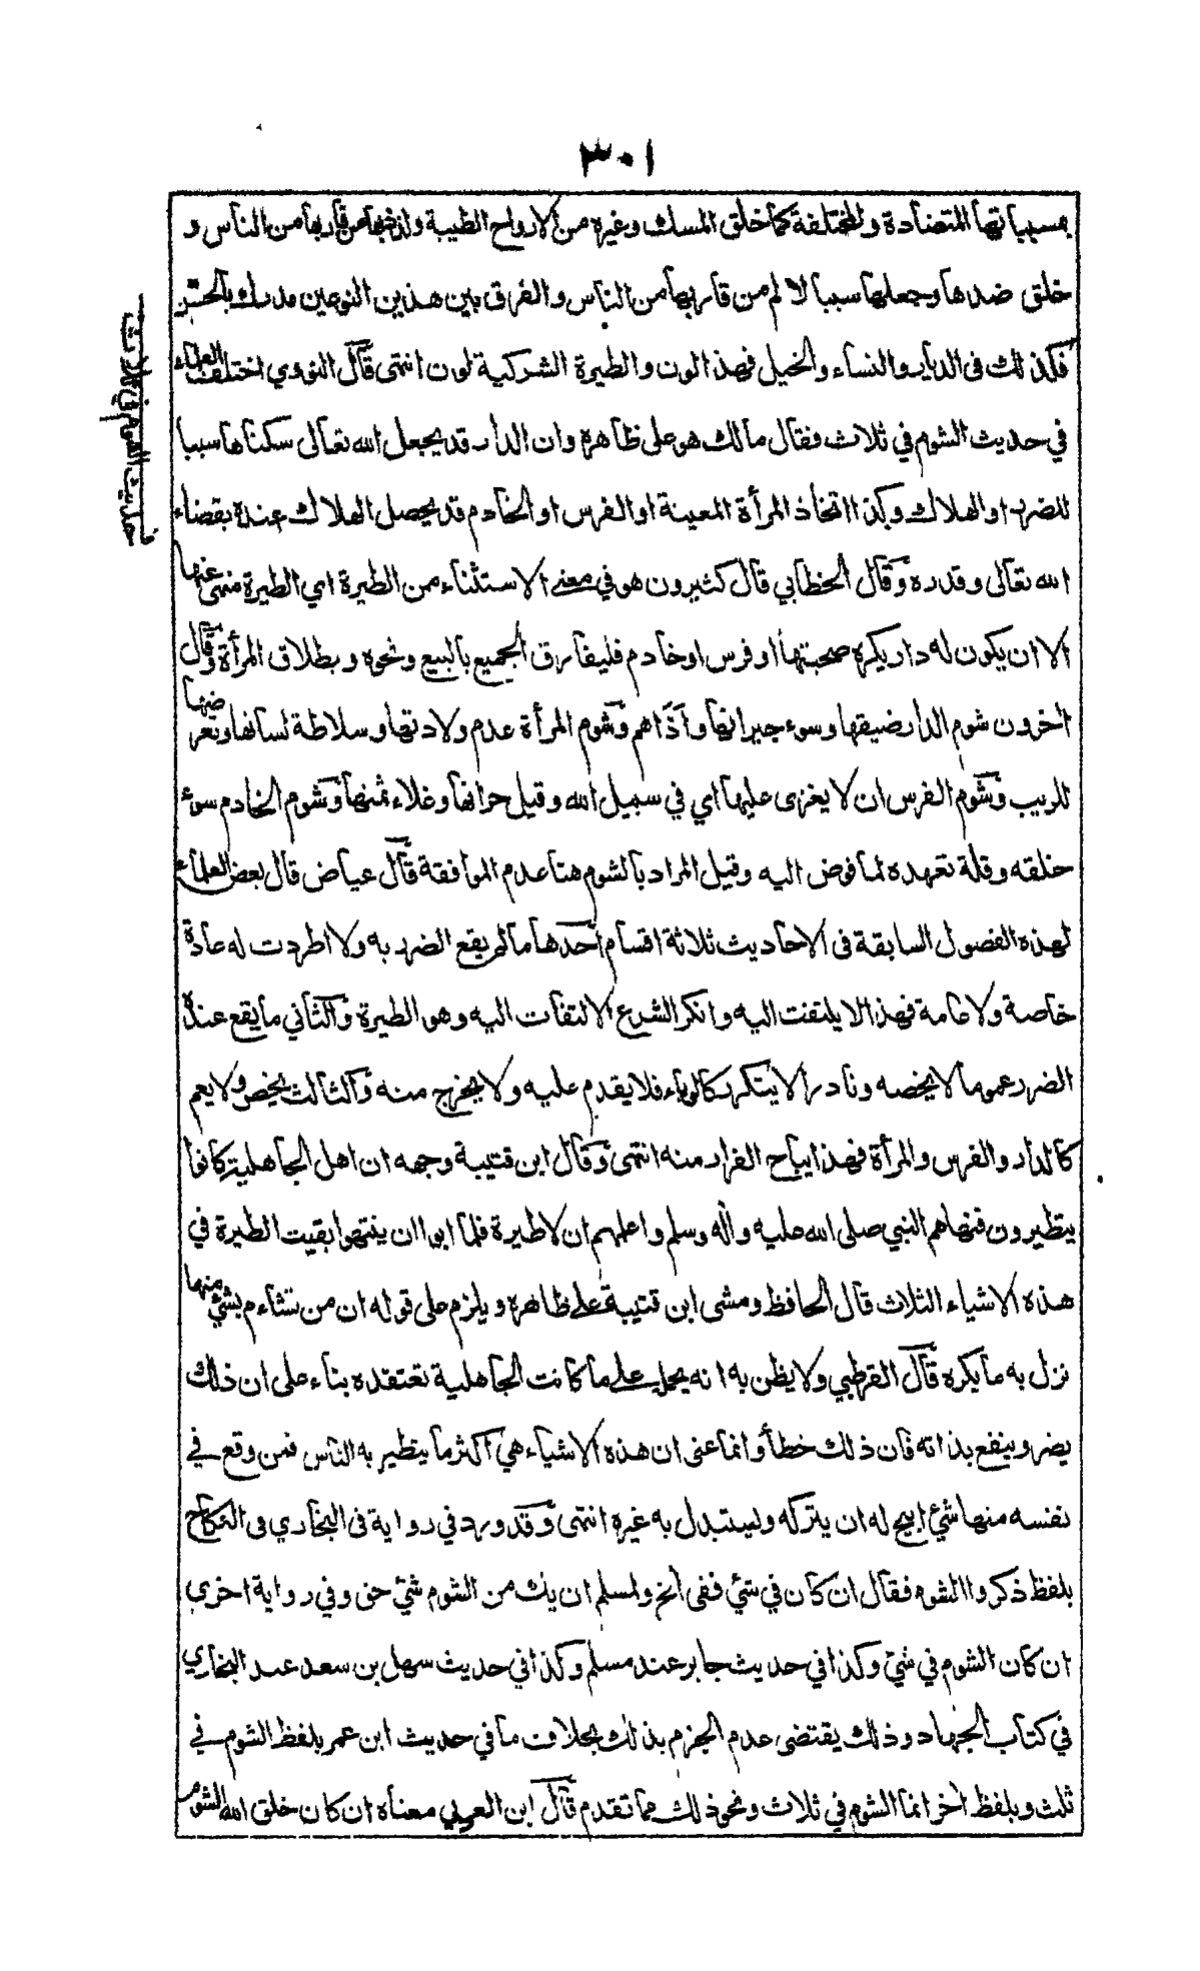 ٣٠١
بمسبباتها المتضادة والمختلفة كما خلق المسك وغيره من الارواح الطيبة ولذذبها من قاربها من الناس و
خلق ضدها وجعلها سببا لالم من قاربها من الناس والفرق بين هذين النوعين مدرك بالحس
فكذلك فى الديار والنساء والخيل فهذا لون والطيرة الشركية لون انتهى قال النووي اختلف العلماء
في حديث الشوم في ثلاث فقال مالك هو على ظاهره وان الدار قد يجعل الله تعالى سكناها سببا
للضرر او الهلاك وكذا اتخاذ المرأة المعينة او الفرس او الخادم قد يحصل الهلاك عنده بقضاء
الله تعالى وقدره وقال الخطابي قال كثيرون هو في معنى الاستثناء من الطيرة اي الطيرة منهى عنها
الا ان يكون له دار يكره صحبتها او فرس او خادم فليفارق الجميع بالبيع ونحوه وبطلاق المرأة وقال
اخرون شوم الدار ضيقها وسوء جيرانها واذاهم وشوم المرأة عدم ولادتها وسلاطة لسانها وتعرضها
للريب وشوم الفرس ان لا يغزى عليها اي في سبيل الله وقيل حرانها وغلاء ثمنها وشوم الخادم سوء
خلقه وقلة تعهده لما فوض اليه وقيل المراد بالشوم هنا عدم الموافقة قال عياض قال بعض العلماء
لهذه الفصول السابقة فى الاحاديث ثلاثة اقسام احدها ما لم يقع الضرر به ولا اطردت له عادة
خاصة ولا عامة فهذا لا يلتفت اليه وانكر الشرع الالتفات اليه وهو الطيرة والثاني ما يقع عنده
الضرر عموما لا يخصه ونادرا لا يتكرر كالوباء فلا يقدم عليه ولا يخرج منه والثالث يخص ولا يعم
كالدار والفرس والمرأة فهذا يباح الفرار منه انتهى وقال ابن قتيبة وجهه ان اهل الجاهلية كانوا
يتطيرون فنهاهم النبي صلى الله عليه واله وسلم واعلمهم ان لا طيرة فلما ابوا ان ينتهوا بقيت الطيرة في
هذه الاشياء الثلاث قال الحافظ ومشى ابن قتيبة على ظاهره ويلزم على قوله ان من تشاءم بشئ منها
نزل به ما يكره قال القرطبي ولا يظن به انه يحمله على ما كانت الجاهلية تعتقده بناء على ان ذلك
يضر وينفع بذاته فان ذلك خطأ وانما عنى ان هذه الاشياء هي اكثر ما يتطير به الناس فمن وقع في
نفسه منها شئ ابيح له ان يتركه ويستبدل به غيره انتهى وقد ورد في رواية فى البخاري فى النكاح
بلفظ ذكروا الشوم فقال ان كان في شئ ففى الخ ولمسلم ان يك من الشوم شئ حق وفي رواية اخرى
ان كان الشوم في شئ وكذا في حديث جابر عند مسلم وكذا في حديث سهل بن سعد عند البخاري
في كتاب الجهاد وذلك يقتضى عدم الجزم بذلك بخلاف ما في حديث ابن عمر بلفظ الشوم في
ثلث وبلفظ اخر انما الشوم في ثلاث ونحو ذلك مما تقدم قال ابن العربي معناه ان كان خلق الله الشوم
ف حديث الشوم في ثلاث